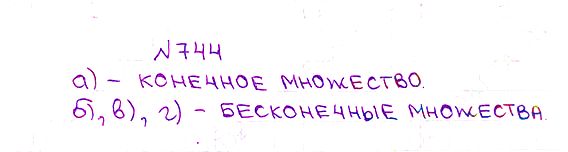 №744
а) – конечное множество.
б), в), г) – бесконечные множества.